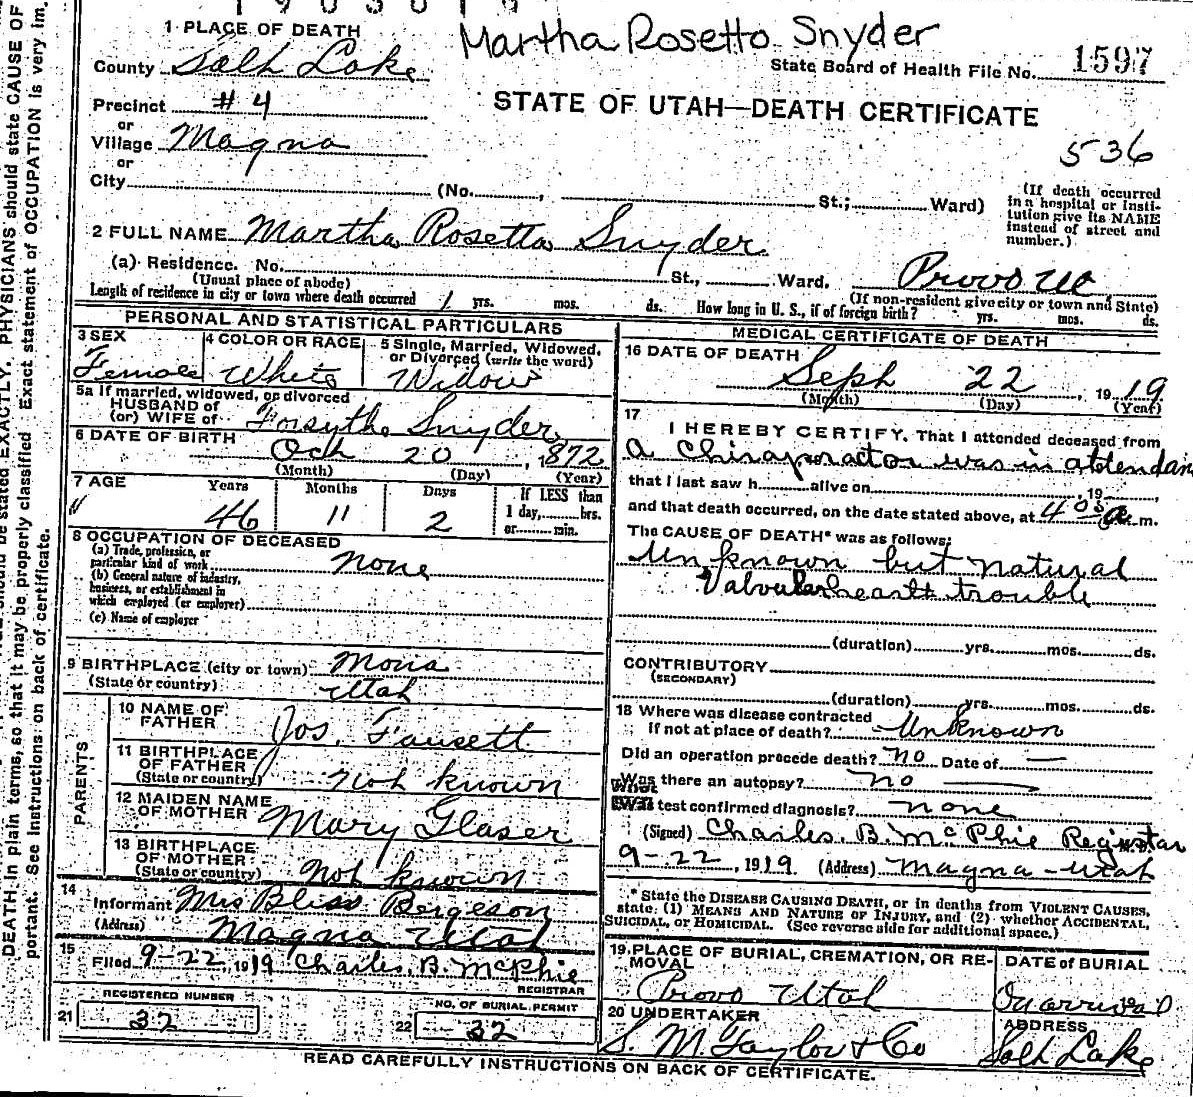 Martha Rosetto Snyder
1 PLACE OF DEATH
County Salt Lake
State Board of Health File No. 1597
Precinct #4
STATE OF UTAH—DEATH CERTIFICATE
or
Village Magna
536
or
City (No. , St.; Ward)
(If death occurred in a hospital or Insti-
tution give its NAME
instead of street and
number.)
2 FULL NAME Martha Rosetta Snyder
(a) Residence. No. St., Ward. Provo Ut
(Usual place of abode) (If non-resident give city or town and State)
Length of residence in city or town where death occurred 1 yrs. mos. ds. How long in U. S., if of foreign birth? yrs. mos. ds.
PERSONAL AND STATISTICAL PARTICULARS
3 SEX Female
4 COLOR OR RACE White
5 Single, Married, Widowed,
or Divorced (write the word)
Widow
5a If married, widowed, or divorced
HUSBAND of
(or) WIFE of Forsythe Snyder
6 DATE OF BIRTH Oct 20, 1872
(Month) (Day) (Year)
7 AGE Years Months Days If LESS than
1 day, hrs.
or min.
46 11 2
8 OCCUPATION OF DECEASED
(a) Trade, profession, or
particular kind of work none
(b) General nature of industry,
business, or establishment in
which employed (or employer)
(c) Name of employer
9 BIRTHPLACE (city or town) Mona
(State or country) Utah
PARENTS
10 NAME OF
FATHER Jos. Fausett
11 BIRTHPLACE
OF FATHER
(State or country) Not known
12 MAIDEN NAME
OF MOTHER Mary Glaser
13 BIRTHPLACE
OF MOTHER
(State or country) Not known
14
Informant Mrs Bliss Bergeson
(Address) Magna Utah
15
Filed 9-22, 1919 Charles. B. McPhie
REGISTRAR
REGISTERED NUMBER
21 32
NO. OF BURIAL PERMIT
22 32
MEDICAL CERTIFICATE OF DEATH
16 DATE OF DEATH
Sept 22, 1919
(Month) (Day) (Year)
17
I HEREBY CERTIFY, That I attended deceased from
a Chiropractor was in attendan
that I last saw h alive on , 19 ,
and that death occurred, on the date stated above, at 4 a. m.
The CAUSE OF DEATH* was as follows:
Unknown but natural
Valvular heart trouble
(duration) yrs. mos. ds.
CONTRIBUTORY
(SECONDARY)
(duration) yrs. mos. ds.
18 Where was disease contracted
If not at place of death? Unknown
Did an operation precede death? no Date of —
Was there an autopsy? no
What test confirmed diagnosis? none
(Signed) Charles. B. McPhie Registrar
9-22, 1919 (Address) Magna - Utah
* State the DISEASE CAUSING DEATH, or in deaths from VIOLENT CAUSES,
state: (1) MEANS AND NATURE OF INJURY, and (2) whether ACCIDENTAL,
SUICIDAL, or HOMICIDAL. (See reverse side for additional space.)
19 PLACE OF BURIAL, CREMATION, OR RE-
MOVAL
Provo Utah
DATE of BURIAL
On arrival
20 UNDERTAKER
S. M. Taylor & Co
ADDRESS
Salt Lake
READ CAREFULLY INSTRUCTIONS ON BACK OF CERTIFICATE.
should be stated EXACTLY. PHYSICIANS should state CAUSE OF
DEATH in plain terms, so that it may be properly classified. Exact statement of OCCUPATION is very im.
portant. See Instructions on back of certificate.